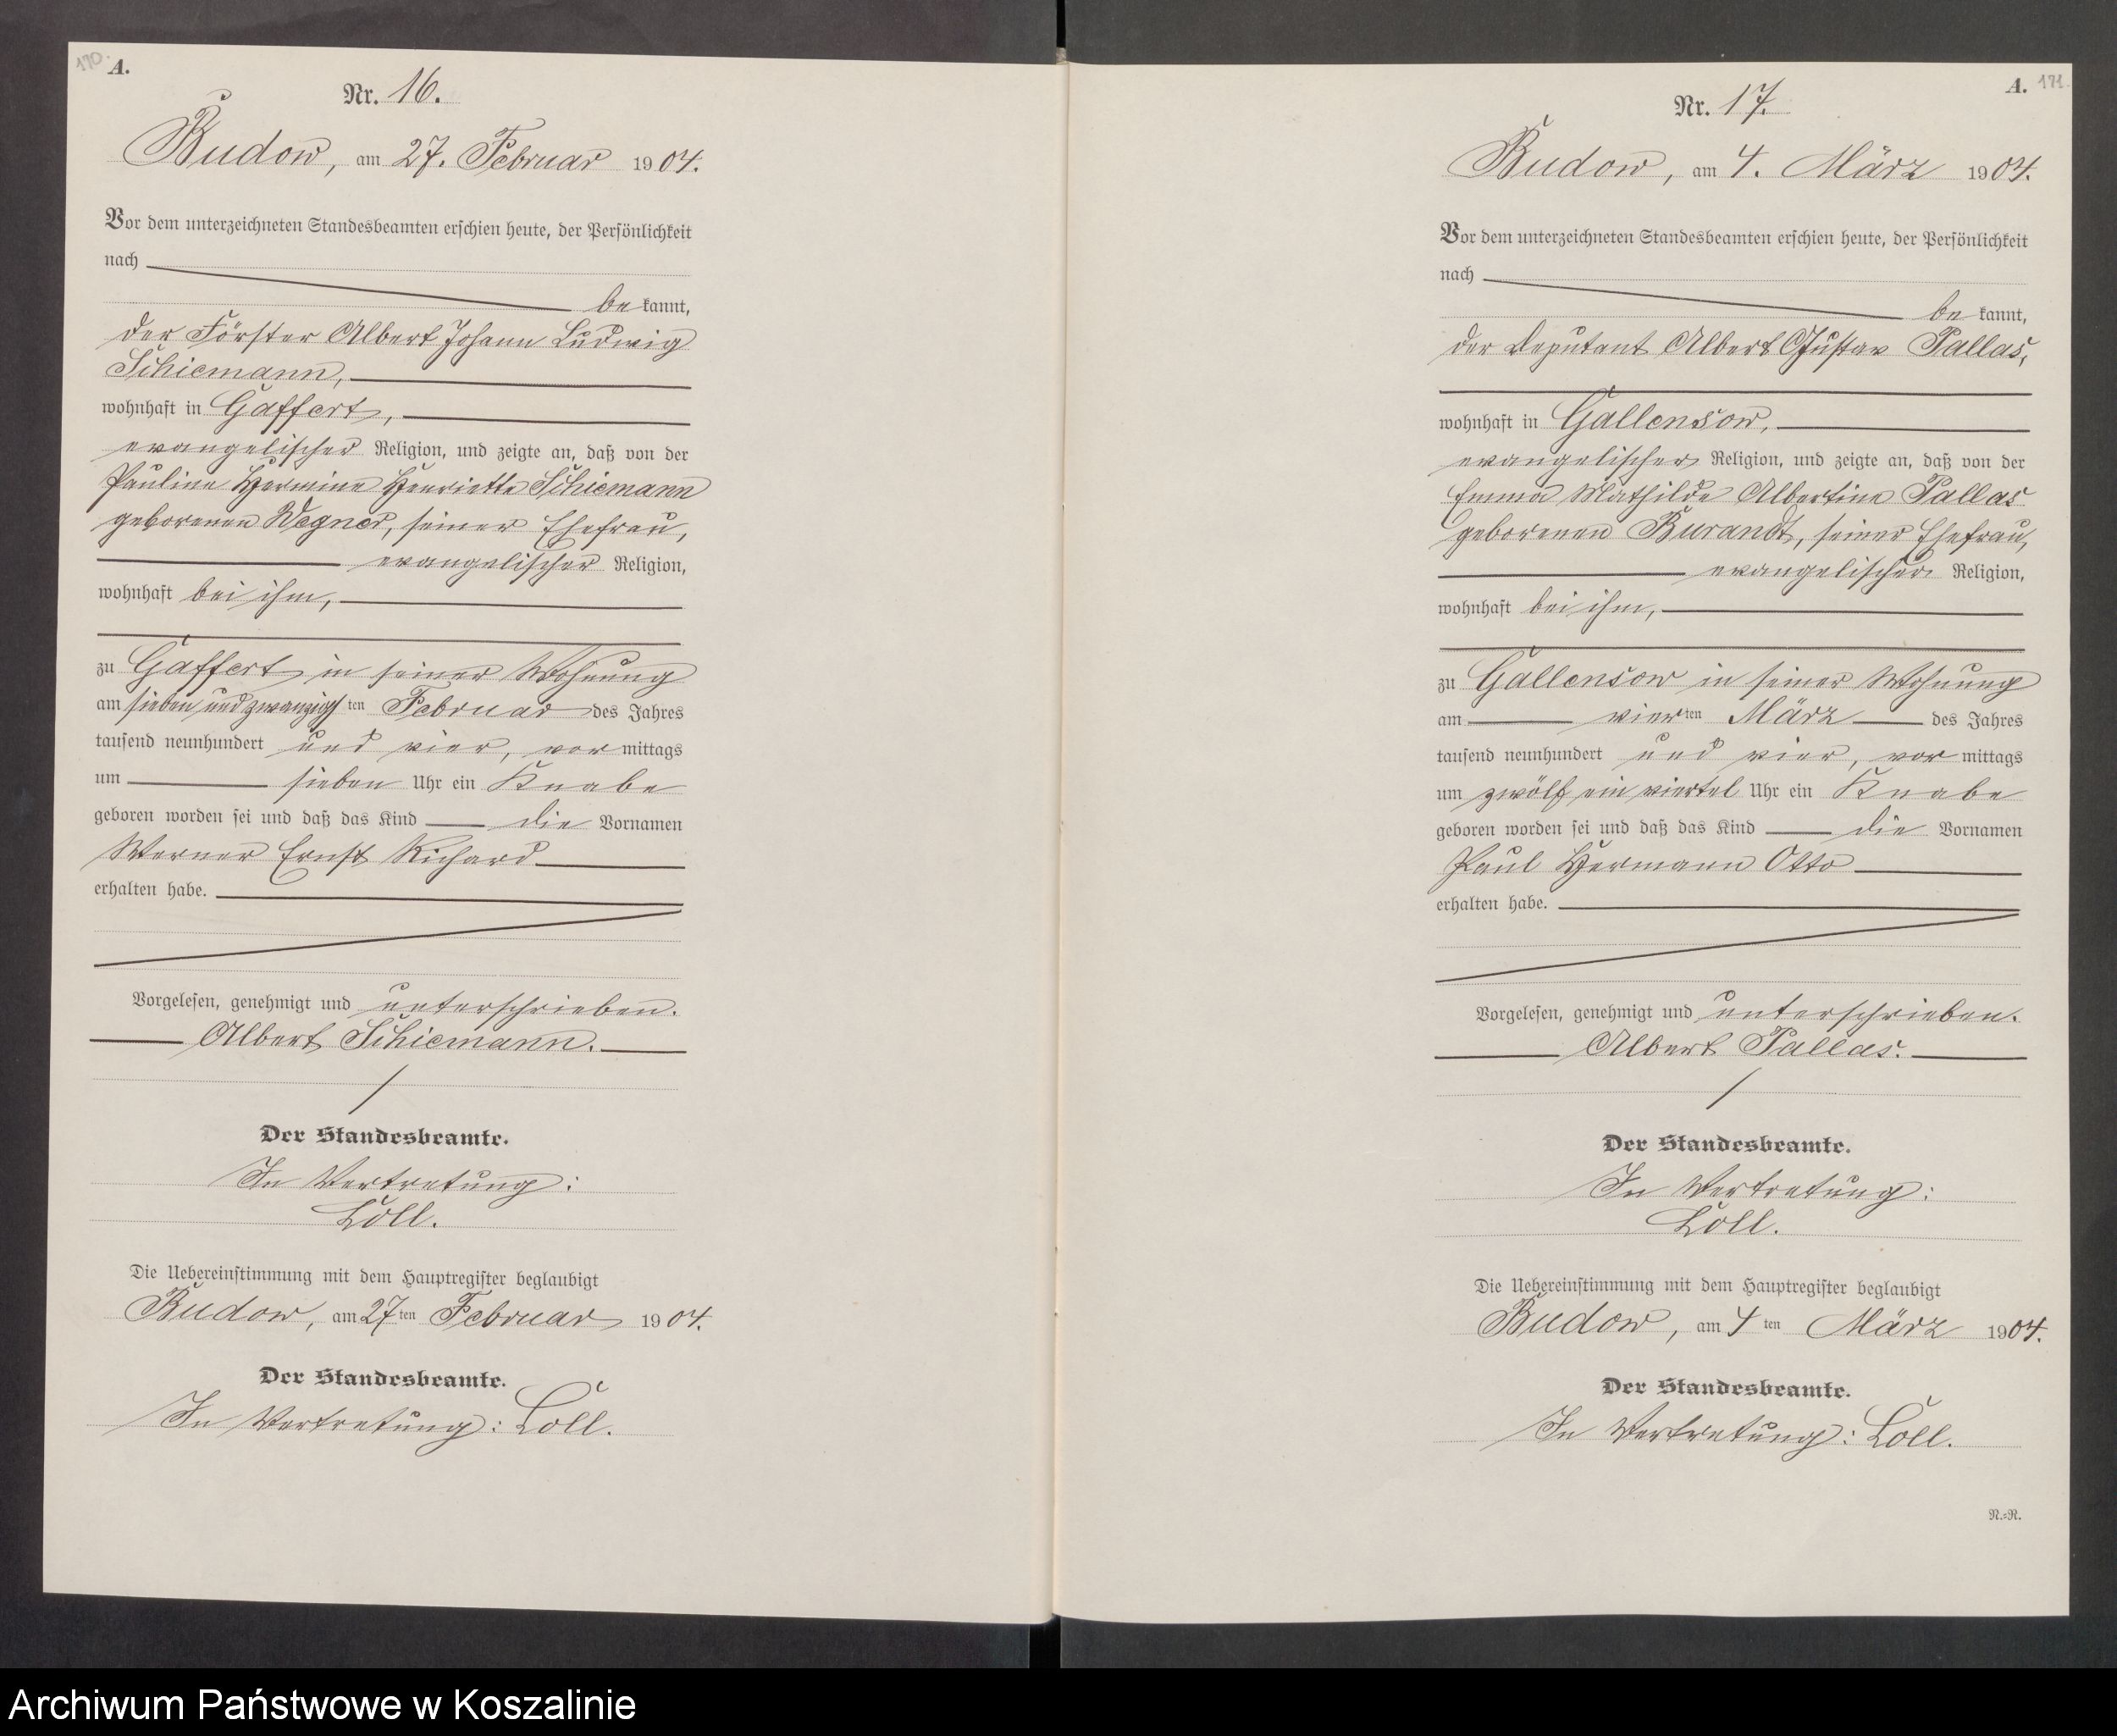 170.
A.
Nr. 16.
Budow, am 27. Februar 1904.
Vor dem unterzeichneten Standesbeamten erschien heute, der Persönlichkeit
nach
bekannt,
der Förster Albert Johann Ludwig
Schiemann,
wohnhaft in Gaffert,
evangelischer Religion, und zeigte an, daß von der
Pauline Hermine Henriette Schiemann
geborenen Wegner, seiner Ehefrau,
evangelischer Religion,
wohnhaft bei ihm,
zu Gaffert in seiner Wohnung
am sieben und zwanzigsten Februar des Jahres
tausend neunhundert und vier, vormittags
um sieben Uhr ein Knabe
geboren worden sei und daß das Kind die Vornamen
Werner Ernst Richard
erhalten habe.
Vorgelesen, genehmigt und unterschrieben.
Albert Schiemann.
Der Standesbeamte.
In Vertretung:
Loll.
Die Uebereinstimmung mit dem Hauptregister beglaubigt
Budow, am 27ten Februar 1904.
Der Standesbeamte.
In Vertretung: Loll.
A. 171.
Nr. 17.
Budow, am 4. März 1904.
Vor dem unterzeichneten Standesbeamten erschien heute, der Persönlichkeit
nach
bekannt,
der Deputant Albert Gustav Pallas,
wohnhaft in Gallensow,
evangelischer Religion, und zeigte an, daß von der
Emma Mathilde Albertine Pallas
geborenen Burandt, seiner Ehefrau,
evangelischer Religion,
wohnhaft bei ihm,
zu Gallensow in seiner Wohnung
am vierten März des Jahres
tausend neunhundert und vier, vormittags
um zwölf ein viertel Uhr ein Knabe
geboren worden sei und daß das Kind die Vornamen
Paul Hermann Otto
erhalten habe.
Vorgelesen, genehmigt und unterschrieben.
Albert Pallas.
Der Standesbeamte.
In Vertretung:
Loll.
Die Uebereinstimmung mit dem Hauptregister beglaubigt
Budow, am 4ten März 1904.
Der Standesbeamte.
In Vertretung: Loll.
N.=R.
Archiwum Państwowe w Koszalinie